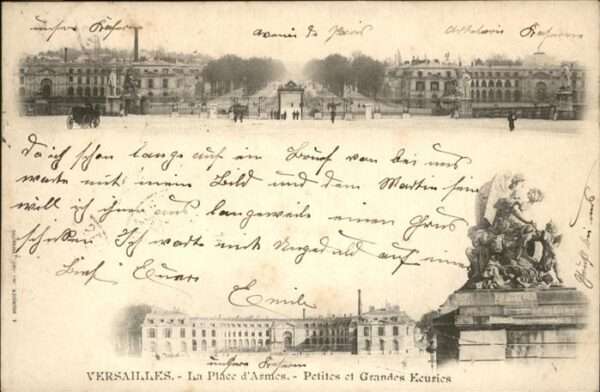 unsere Kasern
Avenue de Paris
Artillerie Kasern
Da ich schon lange auf ein Brief von bei uns
warte mit mein Bild und dem Martin sein
will ich ihm aus langeweile einen Grus
schicken. Ich warte mit Ungedald auf eine
Brief Euers
Emile
unsere Kasern
VERSAILLES. - La Place d'Armes. - Petites et Grandes Ecuries